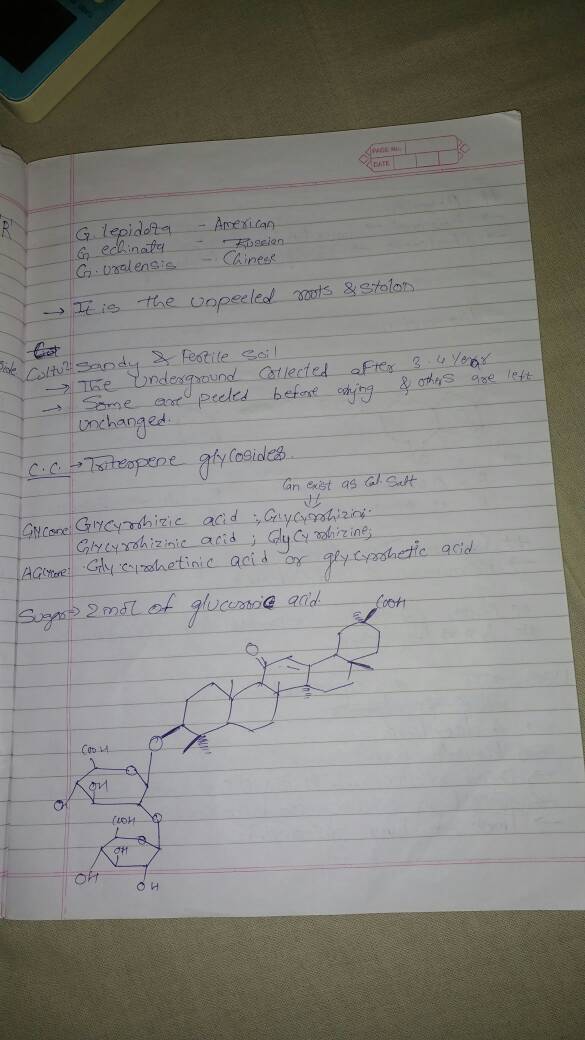 PAGE No.
DATE
R
G. lepidota - American
G echinata - Russian
G. uralensis - Chinese
→ It is the unpeeled roots & stolon
Cultu? Sandy & Fertile Soil
→ The Underground Collected after 3-4 Year
→ Some are peeled before drying & others are left
unchanged.
C.C. → Triterpene glycosides.
Can exist as Cal. Salt
Glycone: Glycyrrhizic acid ; Glycyrrhizin.
Glycyrrhizinic acid ; Glycyrrhizine;
AGlycone: Glycyrrhetinic acid or glycyrrhetic acid
Sugar → 2 mol of glucuronic acid.
COOH
O
O
COOH
O
OH
OH
O
COOH
O
OH
OH
OH